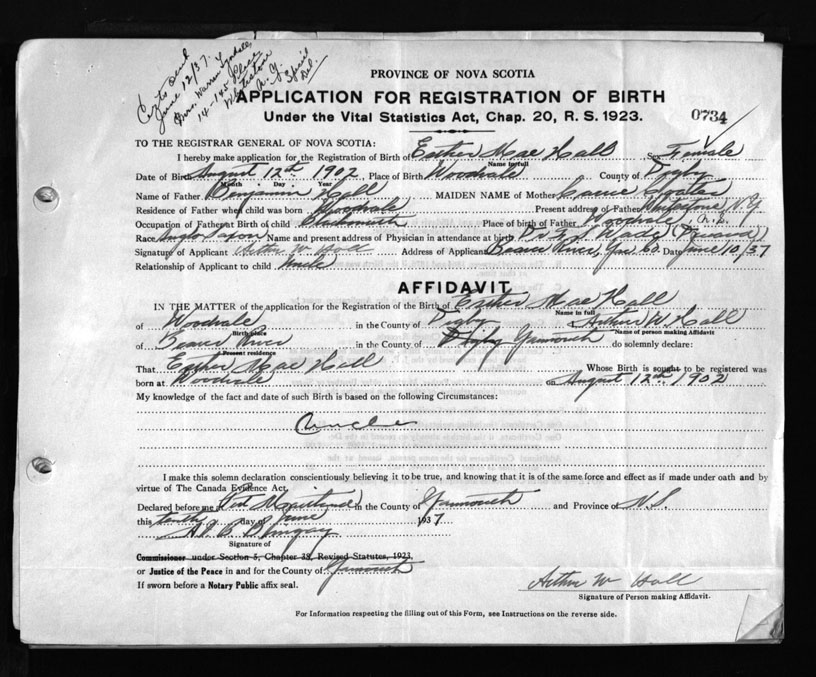 June 12/37
Mrs. Warren
14-145 Place
Whitestone
N.Y.
PROVINCE OF NOVA SCOTIA
APPLICATION FOR REGISTRATION OF BIRTH
Under the Vital Statistics Act, Chap. 20, R. S. 1923.
0734
TO THE REGISTRAR GENERAL OF NOVA SCOTIA:
I hereby make application for the Registration of Birth of Esther Mae Hall Sex Female
Name in full
Date of Birth August 12th 1902 Place of Birth Woodvale County of Digby
Month - Day - Year
Name of Father Benjamin Hall MAIDEN NAME of Mother
Residence of Father when child was born Woodvale Present address of Father Whitestone N.Y.
Occupation of Father at Birth of child Blacksmith Place of birth of Father Woodvale N.S.
Race Anglo Saxon Name and present address of Physician in attendance at birth Dr.
Signature of Applicant Arthur W Hall Address of Applicant Beaver River, Yar. Co. Date June 10/37
Relationship of Applicant to child Uncle
AFFIDAVIT
IN THE MATTER of the application for the Registration of the Birth of Esther Mae Hall
Name in full
of Woodvale in the County of Digby I Arthur W Hall
Birth place Name of person making Affidavit
of Beaver River in the County of Digby Yarmouth do solemnly declare:
Present residence
That Esther Mae Hall Whose Birth is sought to be registered was
born at Woodvale on August 12th 1902
My knowledge of the fact and date of such Birth is based on the following Circumstances:
Uncle
I make this solemn declaration conscientiously believing it to be true, and knowing that it is of the same force and effect as if made under oath and by
virtue of The Canada Evidence Act.
Declared before me at Port Maitland in the County of Yarmouth and Province of N.S.
this tenth day of June 1937
Bingay
Signature of
Commissioner under Section 5, Chapter 38, Revised Statutes, 1923,
or Justice of the Peace in and for the County of Yarmouth
If sworn before a Notary Public affix seal.
Arthur W Hall
Signature of Person making Affidavit.
For Information respecting the filling out of this Form, see Instructions on the reverse side.